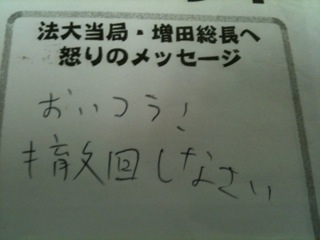 法大当局・増田総長へ
怒りのメッセージ
おいこう!
撤回しなさい